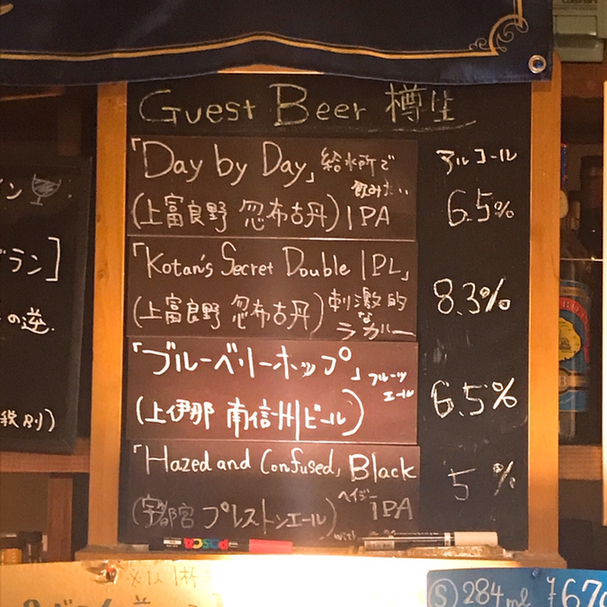 Guest Beer 樽生
アルコール
「Day by Day」給水所で飲みたい
(上富良野 忽布古丹) IPA 6.5%
「Kotan's Secret Double IPL」
(上富良野 忽布古丹) 刺激的なラガー 8.3%
「ブルーベリーホップ」フルーツエール
(上伊那 南信州ビール) 6.5%
「Hazed and Confused」Black
(宇都宮 プレストンエール) ヘイジーIPA 5%
ラン]
の逆
税別)
POSCA
Ⓢ 284ml ¥670